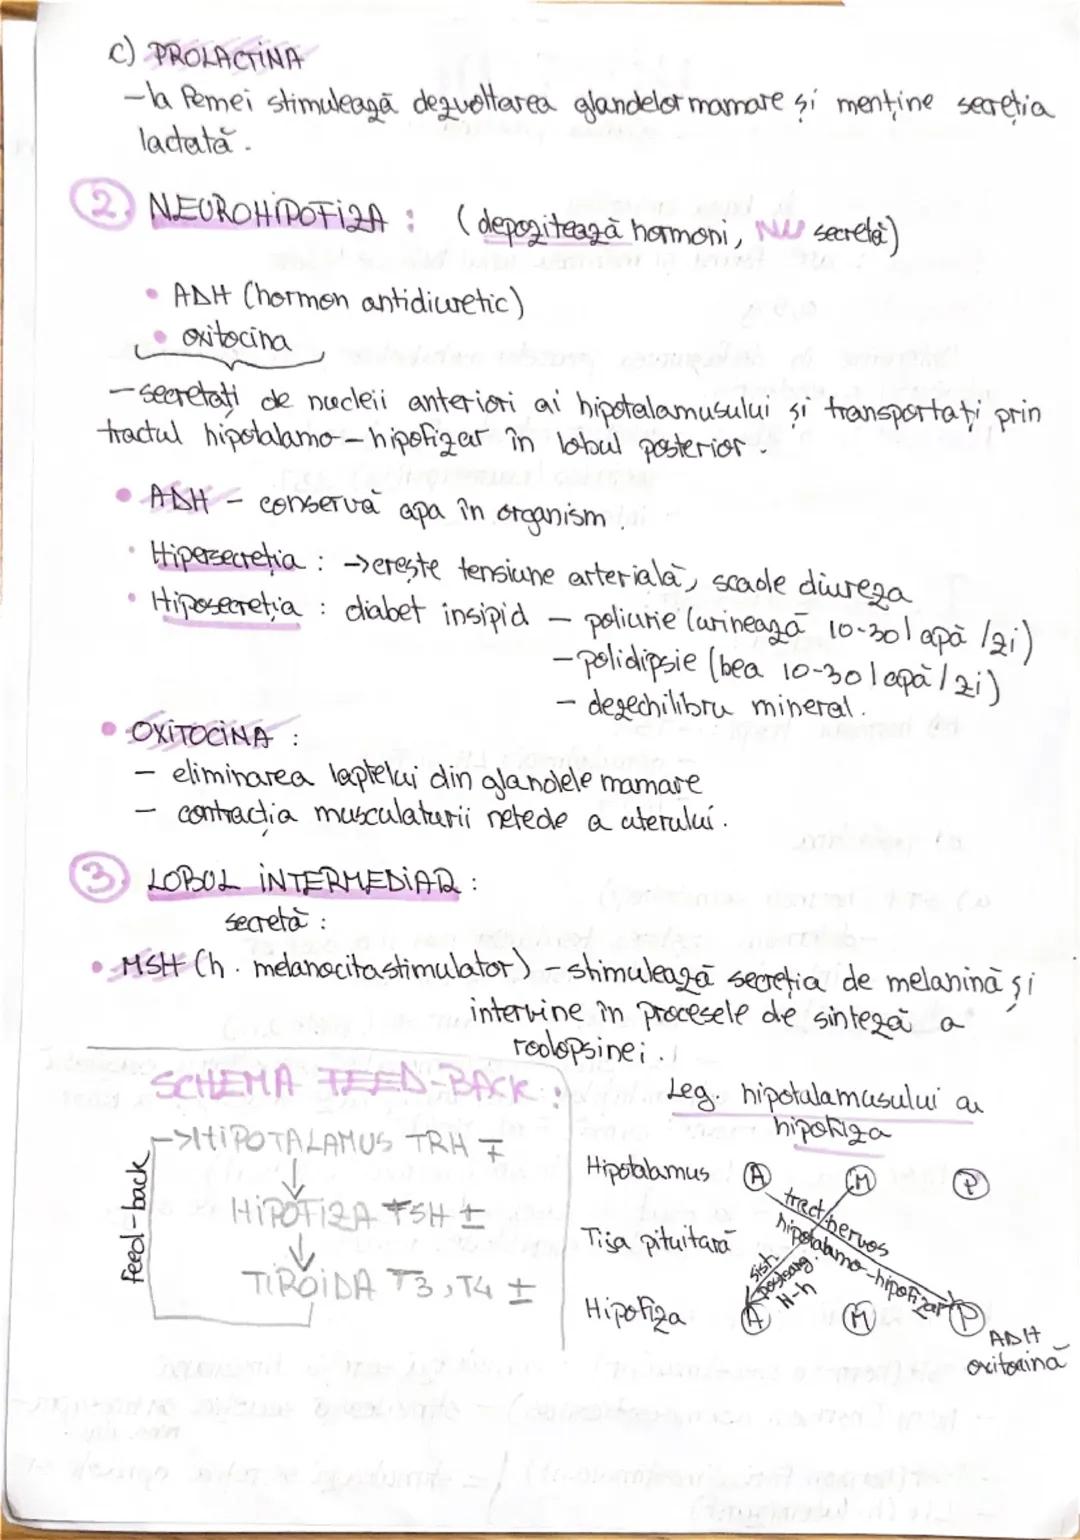 c) PROLACTINA
-la femei stimulează dezvoltarea glandelor mamare și menține secreția
lactată.
2. NEUROHIPOFIZA : (depozitează hormoni, NU secretă)
• ADH (hormon antidiuretic)
• oxitocina
- secretați de nucleii anteriori ai hipotalamusului și transportați prin
tractul hipotalamo-hipofizar în lobul posterior.
• ADH - conservă apa în organism.
• Hipersecreția : → crește tensiune arterială, scade diureza
• Hiposecreția : diabet insipid - poliurie (urinează 10-30 l apă /zi)
- polidipsie (bea 10-30 l apă / zi)
- dezechilibru mineral.
• OXITOCINA :
- eliminarea laptelui din glandele mamare
- contracția musculaturii netede a uterului.
3. LOBUL INTERMEDIAR :
secretă :
• MSH (h. melanocitostimulator) - stimulează secreția de melanină și
intervine în procesele de sinteză a
rodopsinei.
SCHEMA FEED-BACK :
→HIPOTALAMUS TRH ∓
↓
HIPOFIZA TSH ±
↓
TIROIDA T3, T4 ±
feed-back
Leg. hipotalamusului cu
hipofiza
Hipotalamus A M P
tract nervos
hipotalamo-hipofizar
Tija pituitară
sist.
H-h
Hipofiza A M P
ADH
oxitocină